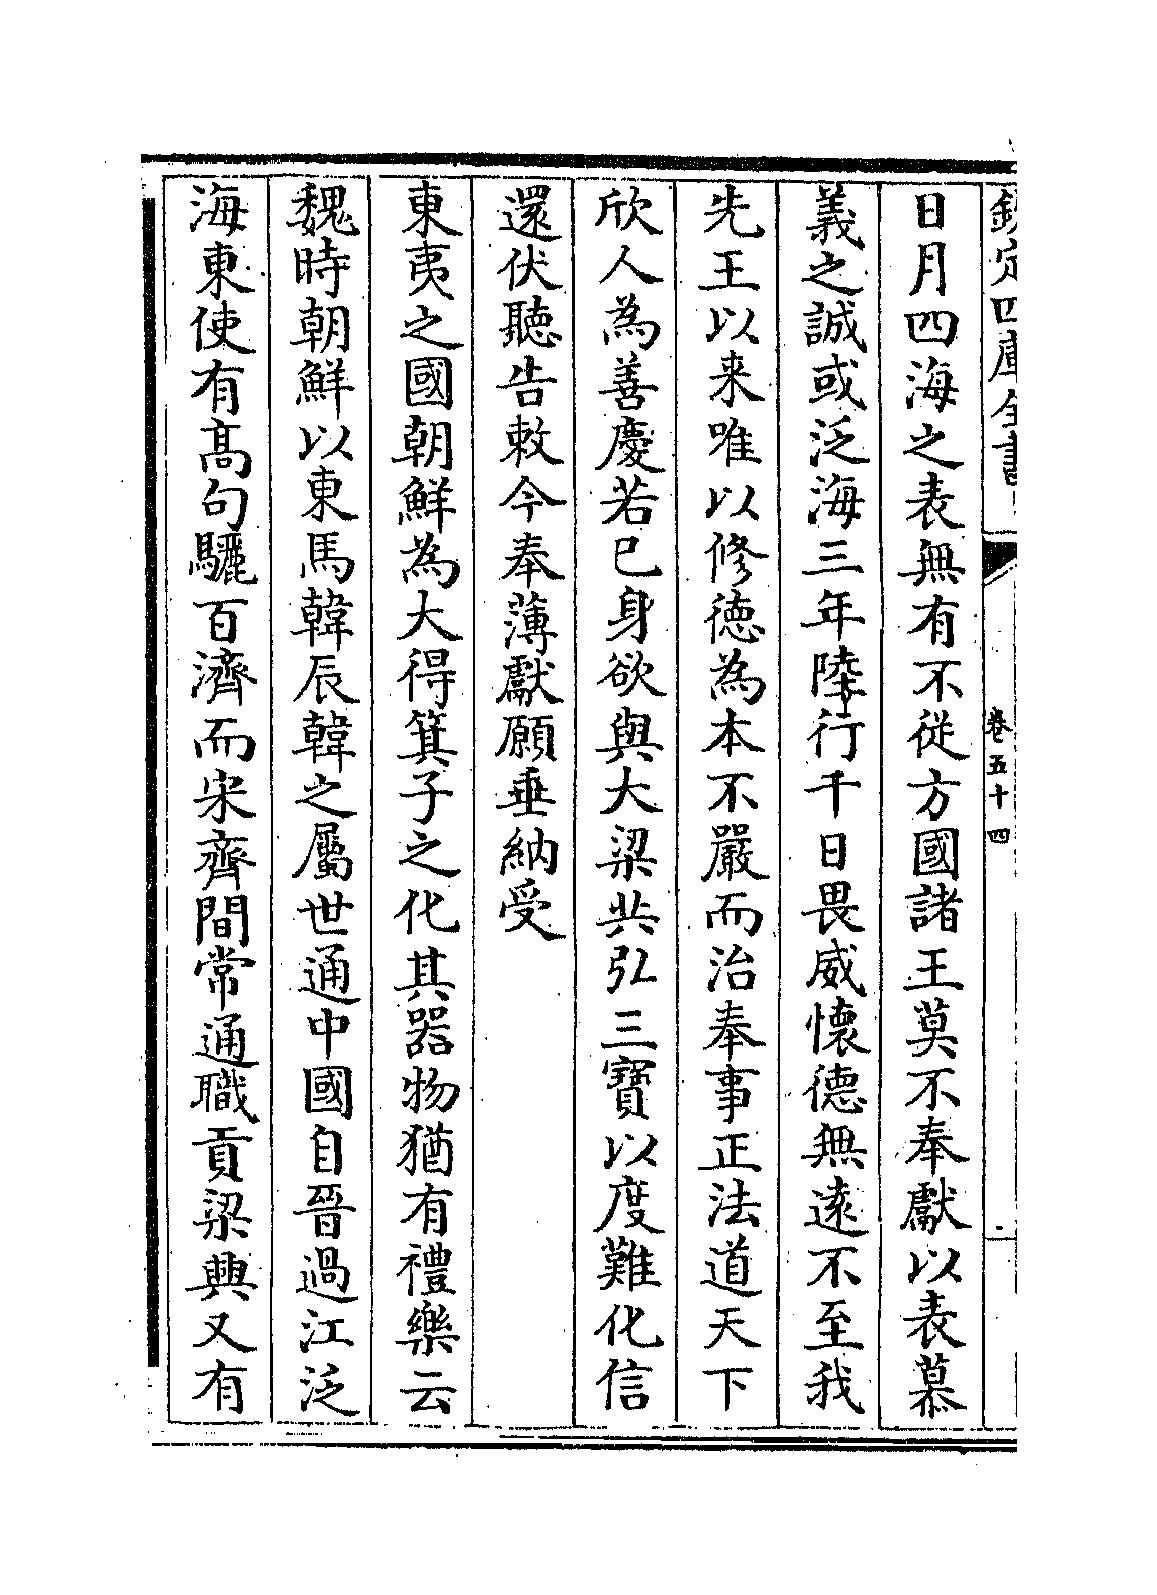 欽定四庫全書
卷五十四
日月四海之表無有不從方國諸王莫不奉獻以表慕
義之誠或泛海三年陸行千日畏威懷德無遠不至我
先王以来唯以修德為本不嚴而治奉事正法道天下
欣人為善慶若已身欲與大梁共弘三寶以度難化信
還伏聽告敕今奉薄獻願垂納受
東夷之國朝鮮為大得箕子之化其器物猶有禮樂云
魏時朝鮮以東馬韓辰韓之屬世通中國自晉過江泛
海東使有髙句驪百濟而宋齊間常通職貢梁興又有